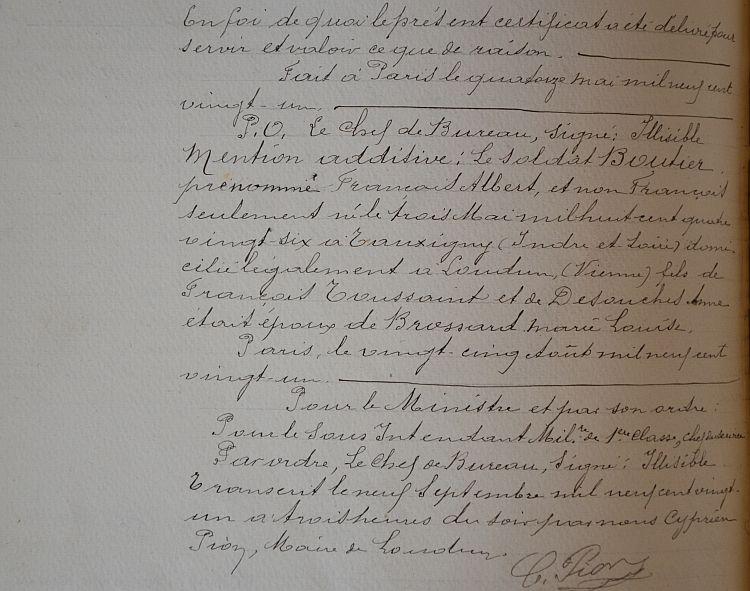 En foi de quoi le présent certificat a été délivré pour
servir et valoir ce que de raison.
Fait à Paris le quatorze mai mil neuf cent
vingt-un.
P.O. Le Chef de Bureau, Signé: Illisible
Mention additive: Le soldat Boutier
prénommé François Albert, et non François
seulement né le trois Mai mil huit cent quatre
vingt-six à Tauxigny (Indre et Loire) domi-
cilié légalement à Loudun, (Vienne) fils de
François Toussaint et de Desouches Anne
était époux de Brossard Marie Louise.
Paris, le vingt-cinq Août mil neuf cent
vingt-un.
Pour le Ministre et par son ordre:
Pour le Sous Intendant Mil.re de 1ère Classe, chef du service
Par ordre, Le Chef de Bureau, Signé: Illisible
Transcrit le neuf Septembre mil neuf cent vingt-
un à trois heures du soir par nous Cyprien
Pion, Maire de Loudun.
C. Pion